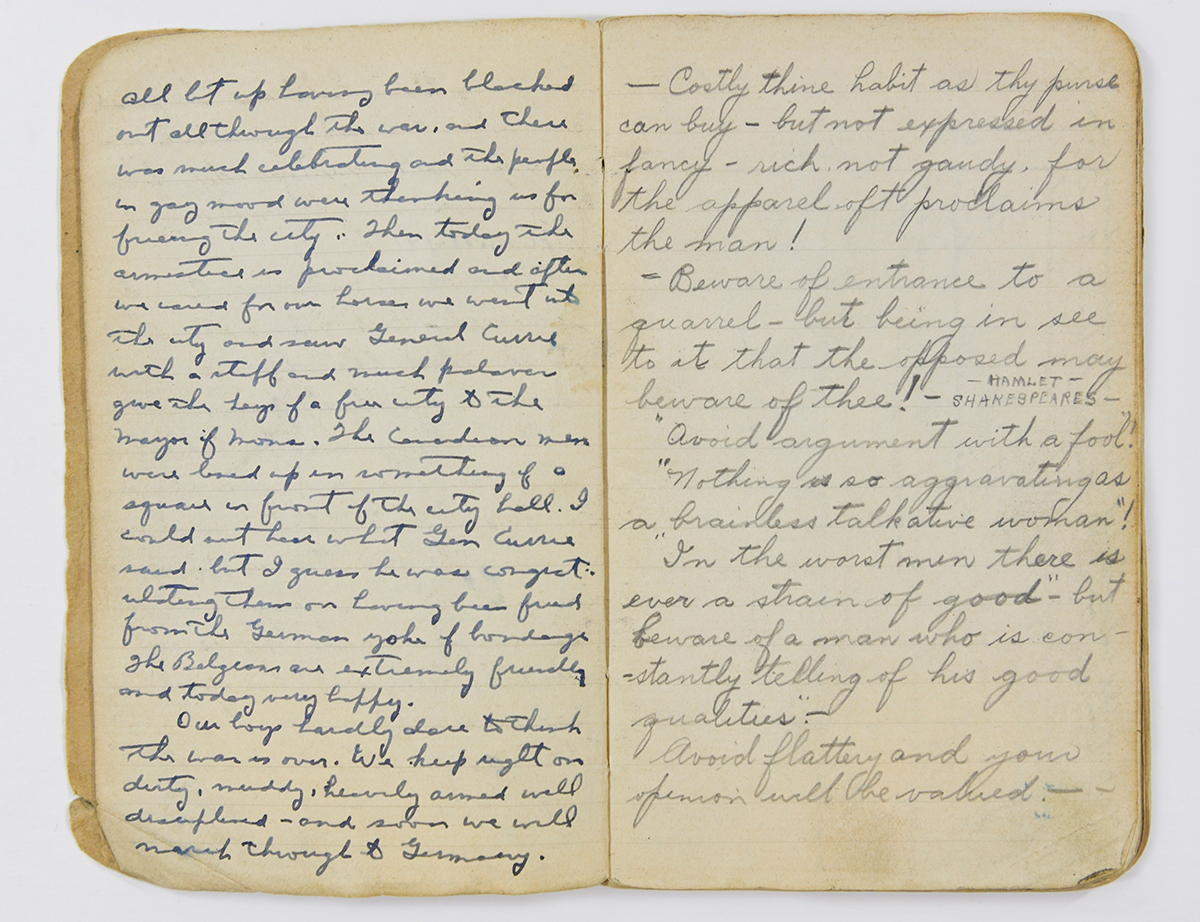 all lit up having been blacked
out all through the war, and there
was much celebrating and the people
in gay mood were thanking us for
freeing the city. Then today the
armistice is proclaimed and after
we cared for our horses we went into
the city and saw General Currie
with a staff and much palaver
give the keys of a free city to the
Mayor of Mons. The Canadian men
were lined up in something of a
square in front of the city hall. I
could not hear what Gen Currie
said but I guess he was congrat-
ulating them on having been freed
from the German yoke of bondage
The Belgians are extremely friendly
and today very happy.
Our boys hardly dare to think
the war is over. We keep right on
duty, muddy, heavily armed well
disciplined - and soon we will
march through to Germany.
— Costly thine habit as thy purse
can buy - but not expressed in
fancy - rich, not gaudy, for
the apparel oft proclaims
the man!
- Beware of entrance to a
quarrel - but being in see
to it that the opposed may
beware of thee! - — HAMLET —
SHAKESPEARES —
"Avoid argument with a fool"!
"Nothing is so aggravating as
a brainless talkative woman"!
"In the worst men there is
ever a strain of good" - but
beware of a man who is con-
-stantly telling of his good
qualities". —
Avoid flattery and your
opinion will be valued. — -